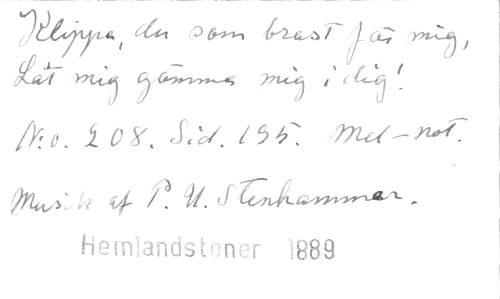 Klippa, du som brast för mig,
Låt mig gömma mig i dig!
N:o. 208. Sid. 195. Mel-not.
Musik af P. U. Stenhammar.
Hemlandstoner 1889